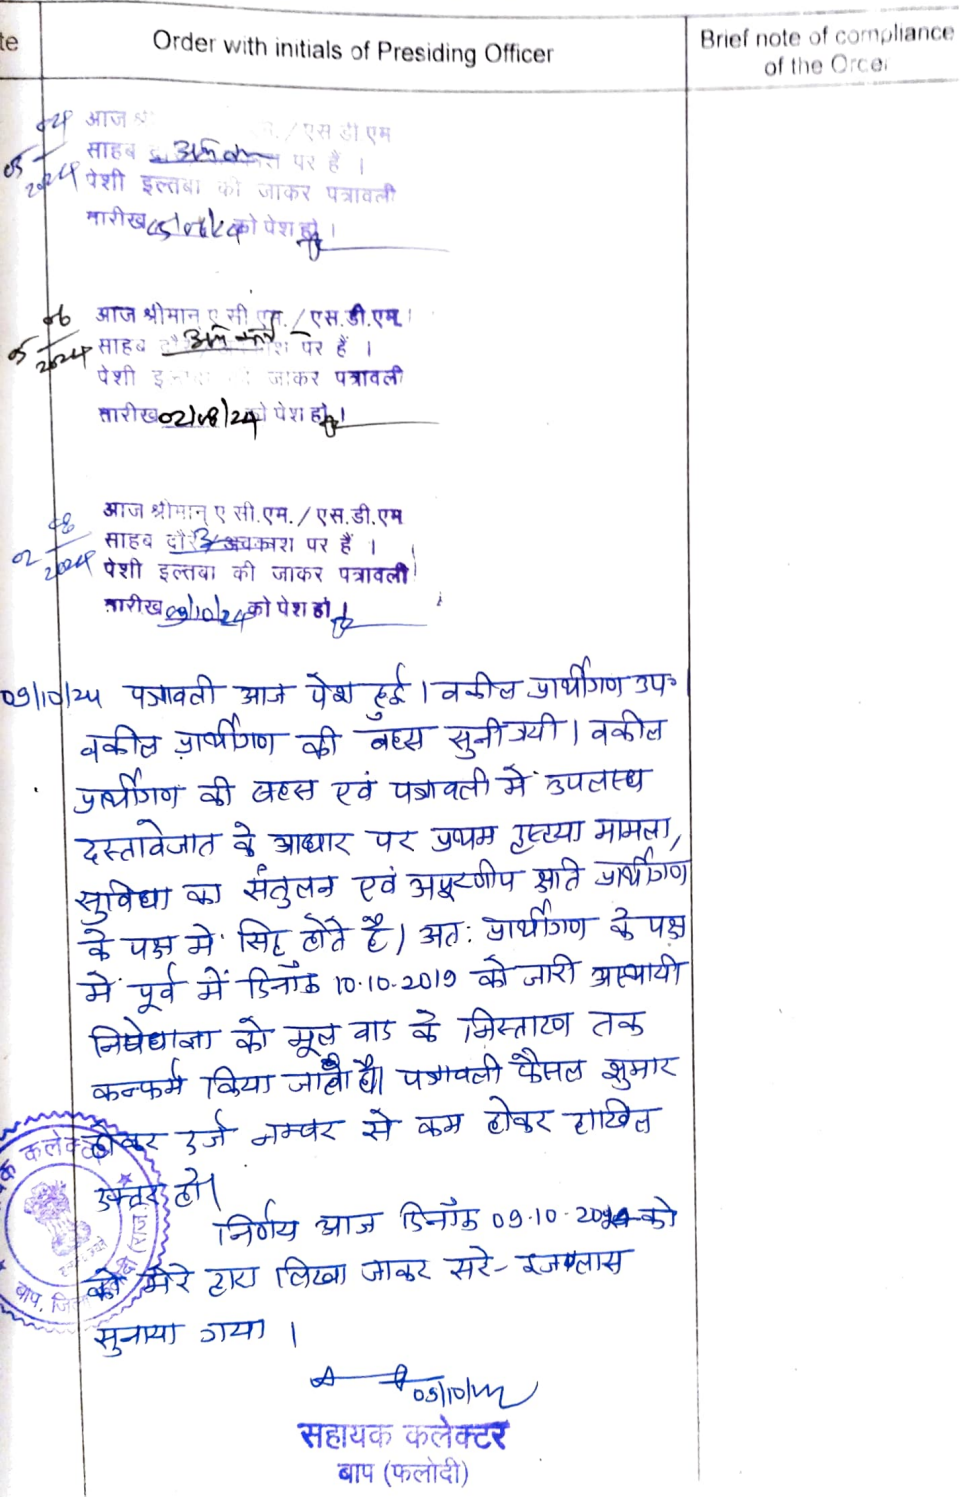 te
Order with initials of Presiding Officer
Brief note of compliance
of the Order
04
05
2024
आज श्री ... म. / एस डी एम
साहब पर हैं ।
पेशी इल्तबा की जाकर पत्रावली
तारीख 05/06/24 को पेश हो ।
06
05
2024
आज श्रीमान् ए सी एम. / एस.डी.एम.
साहब पर हैं ।
पेशी जाकर पत्रावली
तारीख 02/08/24 को पेश हो ।
08
02
2024
आज श्रीमान् ए सी.एम. / एस.डी.एम
साहब दौरे अवकाश पर हैं ।
पेशी इल्तबा की जाकर पत्रावली
तारीख 09/10/24 को पेश हो ।
09/10/24 पत्रावली आज पेश हुई । वकील प्रार्थीगण उप०
वकील प्रार्थीगण की बहस सुनी गयी । वकील
प्रार्थीगण की बहस एवं पत्रावली में उपलब्ध
दस्तावेजात के आधार पर प्रथम दृष्टया मामला,
सुविधा का संतुलन एवं अपूरणीय क्षति प्रार्थीगण
के पक्ष में सिद्ध होते है । अत: प्रार्थीगण के पक्ष
में पूर्व में दिनाँक 10.10.2019 को जारी अस्थायी
निषेधाज्ञा को मूल वाद के निस्तारण तक
कन्फर्म किया जाता है। पत्रावली फैसल शुमार
होकर दर्ज नम्बर से कम होकर दाखिल
दफ्तर हो।
निर्णय आज दिनाँक 09.10.2024 को
को मेरे द्वारा लिखा जाकर सरे-इजलास
सुनाया गया ।
09/10/24
सहायक कलेक्टर
बाप (फलोदी)